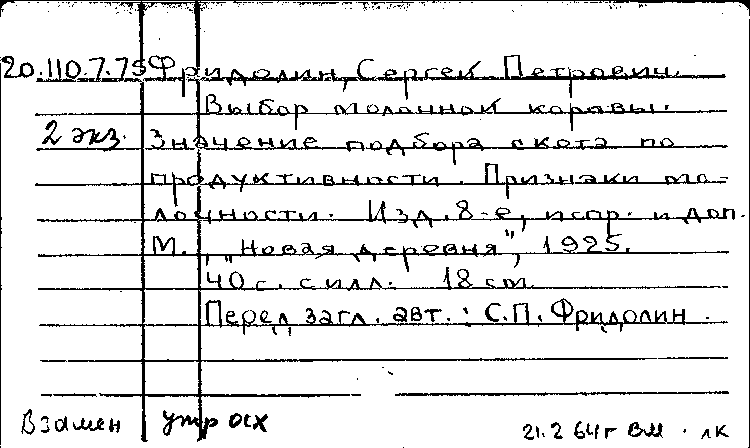 20.110.7.75 Фридолин, Сергей Петрович.
Выбор молочной коровы.
2 экз. Значение подбора скота по
продуктивности. Признаки мо-
лочности. Изд. 8-е, испр. и доп.
М., „Новая деревня", 1925.
40 с. с илл. 18 см.
Перед загл. авт.: С.П. Фридолин.
Взамен утр осх
21.2 64г ВМ. ЛК